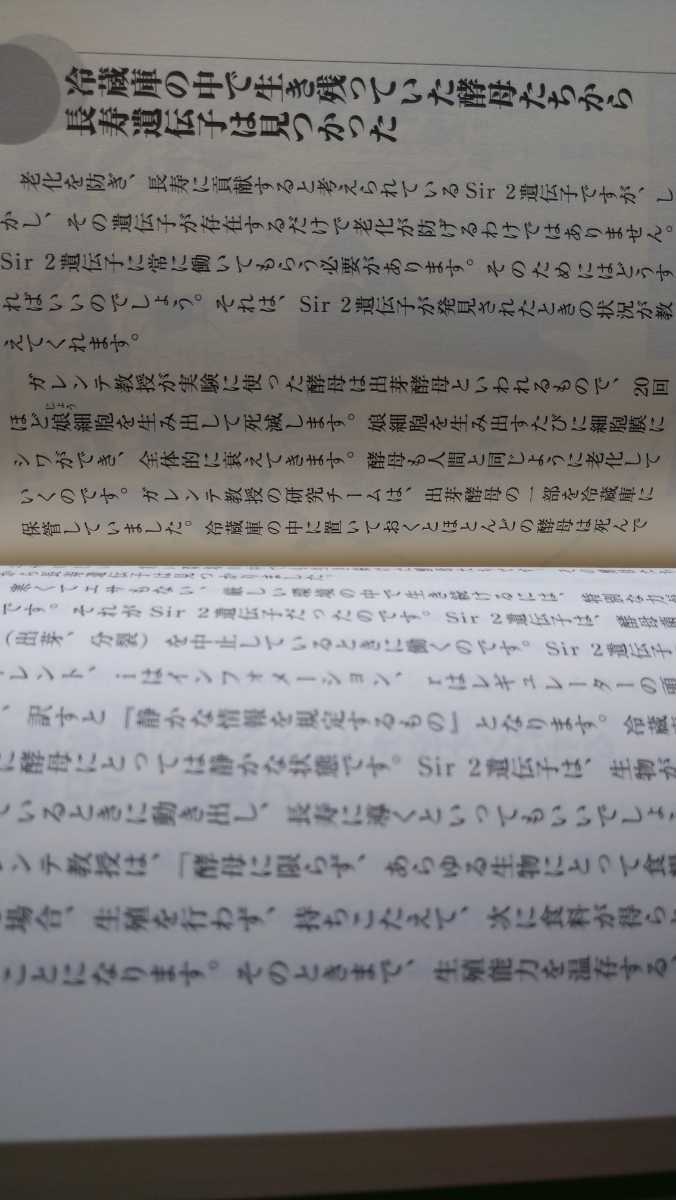 冷蔵庫の中で生き残っていた酵母たちから
長寿遺伝子は見つかった
老化を防ぎ、長寿に貢献すると考えられているSir 2遺伝子ですが、し
かし、その遺伝子が存在するだけで老化が防げるわけではありません。
Sir 2遺伝子に常に働いてもらう必要があります。そのためにはどうす
ればいいのでしょう。それは、Sir 2遺伝子が発見されたときの状況が教
えてくれます。
ガレンテ教授が実験に使った酵母は出芽酵母といわれるもので、20回
ほど娘細胞を生み出して死滅します。娘細胞を生み出すたびに細胞膜に
じょう
シワができ、全体的に衰えてきます。酵母も人間と同じように老化して
いくのです。ガレンテ教授の研究チームは、出芽酵母の一部を冷蔵庫に
保管していました。冷蔵庫の中に置いておくとほとんどの酵母は死んで
から長寿遺伝子は見つかりました。
寒くてエサもない、厳しい環境の中で生き続けるには、特別な力が
です。それがSir 2遺伝子だったのです。Sir 2遺伝子は、酵母
（出芽、分裂）を中止しているときに働くのです。Sir 2遺伝子
レント、iはインフォメーション、rはレギュレーターの
、訳すと「静かな情報を規定するもの」となります。冷蔵
に酵母にとっては静かな状態です。Sir 2遺伝子は、生物が
ているときに動き出し、長寿に導くといってもいいでしょ
ンテ教授は、「酵母に限らず、あらゆる生物にとって食
場合、生殖を行わず、持ちこたえて、次に食料が得ら
ことになります。そのときまで、生殖能力を温存する、